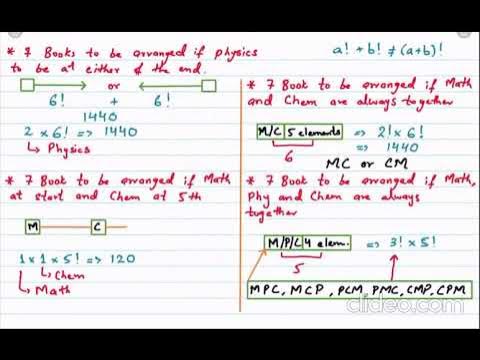 * 7 Books to be arranged if physics
to be at either of the end.
or
6! + 6!
1440
2 x 6! => 1440
Physics
a! + b! ≠ (a+b)!
* 7 Book to be arranged if Math
and Chem are always together
M/C 5 elements => 2! x 6!
6 => 1440
MC or CM
* 7 Book to be arranged if Math
at start and Chem at 5th
M C
1 x 1 x 5! => 120
Chem
Math
* 7 Book to be arranged if Math,
Phy and Chem are always
together
M/P/C 4 elem. => 3! x 5!
5
MPC, MCP, PCM, PMC, CMP, CPM
clideo.com